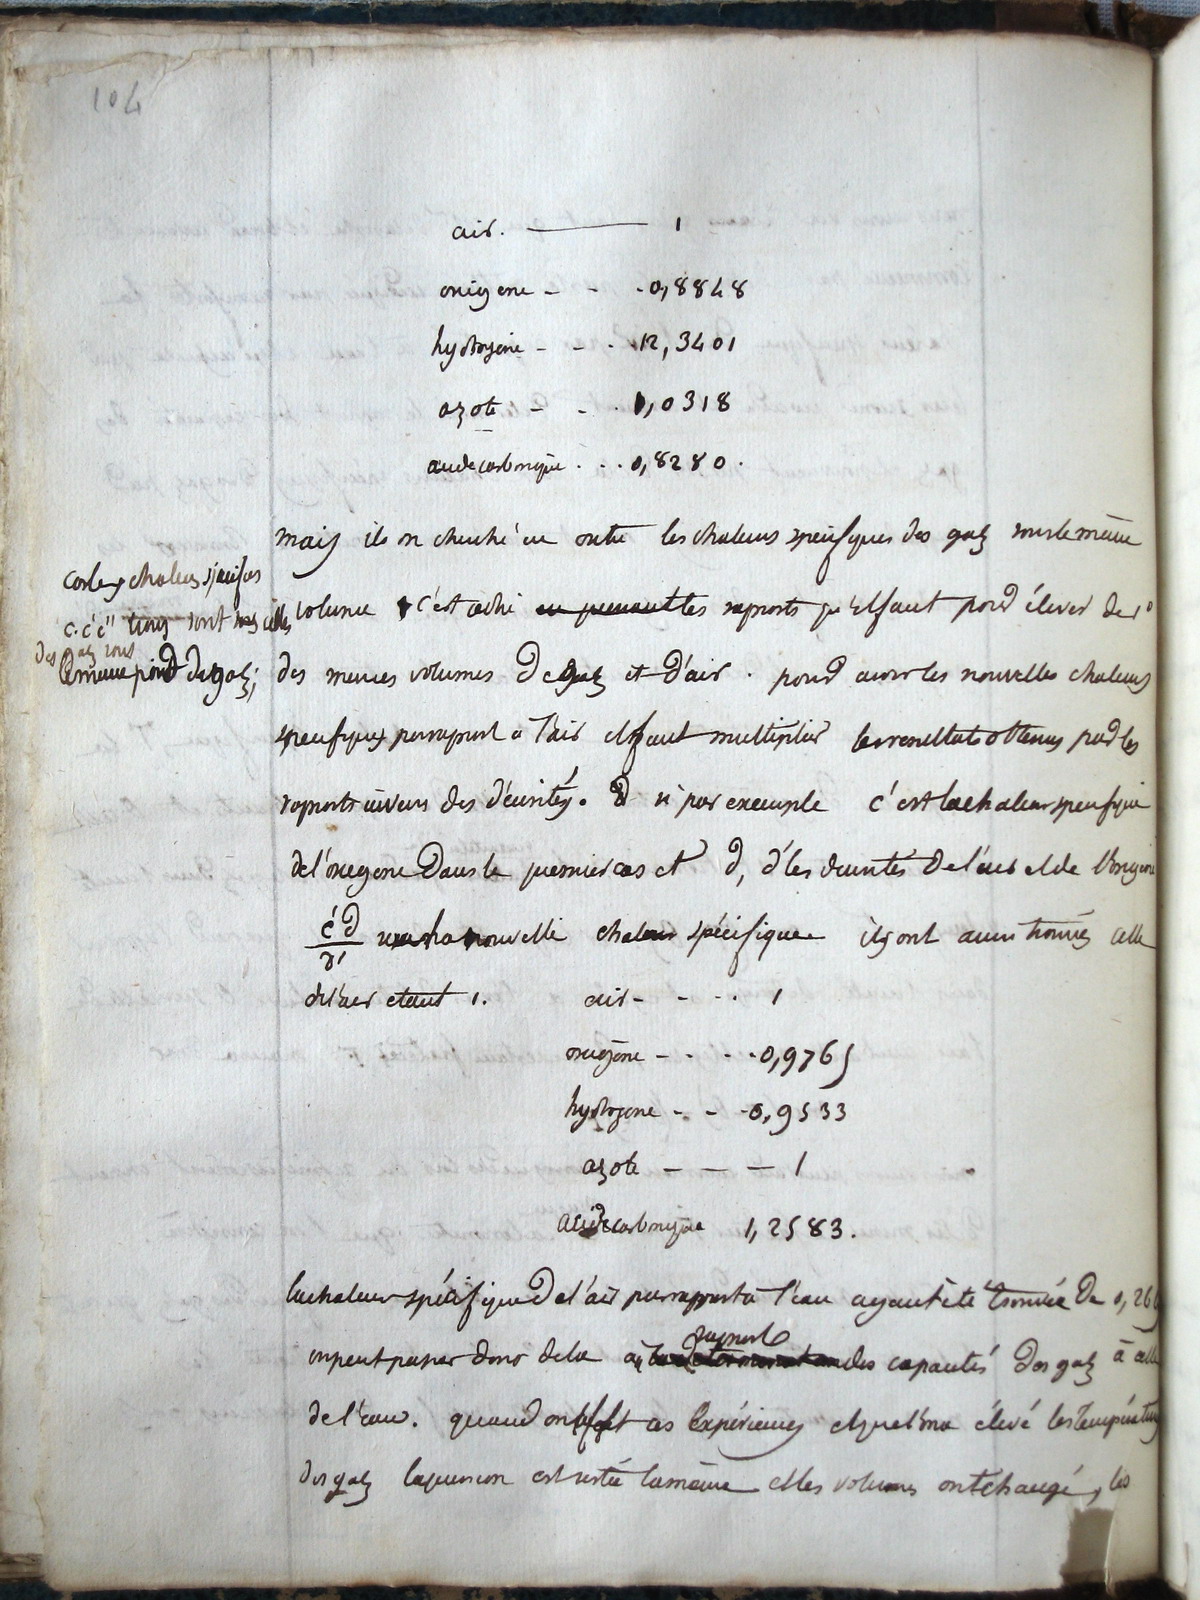 104
air. — 1
oxigene - - - 0,8848
hydrogène - - . 12,3401
azote - - . 1,0318
acide carbonique . . . 0,8280.
mais ils on cherché en outre les chaleurs specifiques des gaz sous le même
volume c'est a dire les rapports qu'il faut pour élever de 1°
des memes volumes de gaz et d'air. pour avoir les nouvelles chaleurs
specifiques par rapport a l'air il faut multiplier les resultats obtenus par les
raports invers des dencités. si par exemple c' est la chaleur specifique
de l'oxigene dans le premier cas et d, d' les dencités de l'air et de l'oxigene
c'd/d' sera la nouvelle chaleur spécifique ils ont aussi trouvés celle
de l'air etant 1. air - - . . 1
oxigène - - . . 0,9765
hydrogene - - - 0,9533
azote — — — 1
acide carbonique 1,2583.
car les chaleurs specifiques
c. c' c'' sont
des gaz sous
le meme poid de gaz;
la chaleur spécifique de l'air par rapport a l'eau ayant été trouvée de 0,26
on peut passer donc de la au rapport des capacités des gaz à celle
de l'eau. quand on fait ces expériences et que l'on a élevé les températures
des gaz la pression est restée la même et les volumes ont changé, les